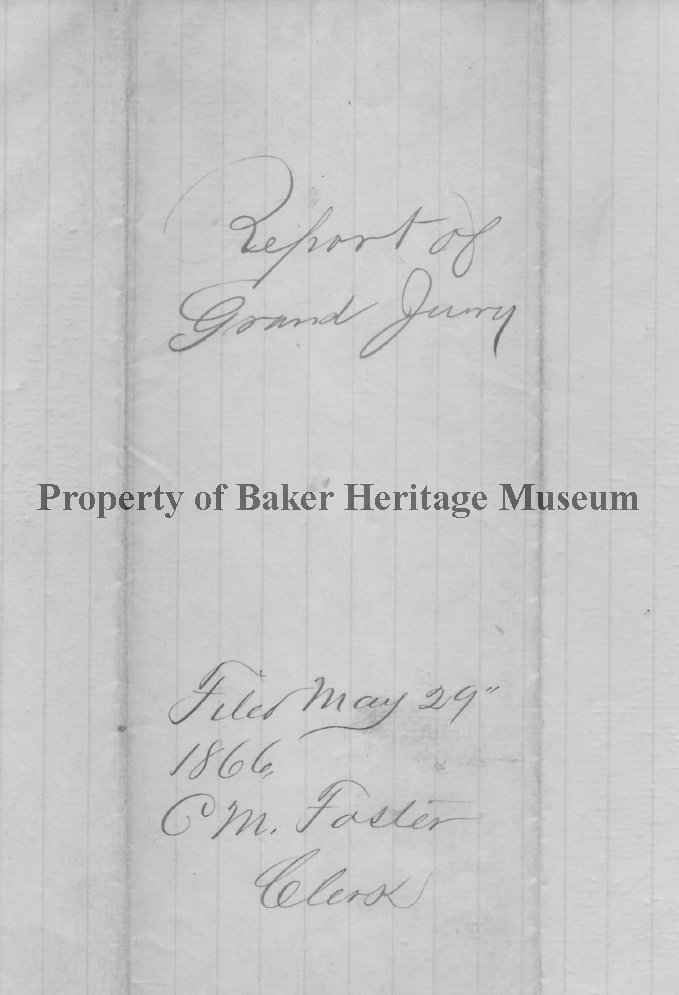 Report of
Grand Jury
Property of Baker Heritage Museum
Filed May 29"
1866,
C M. Foster
Clerk